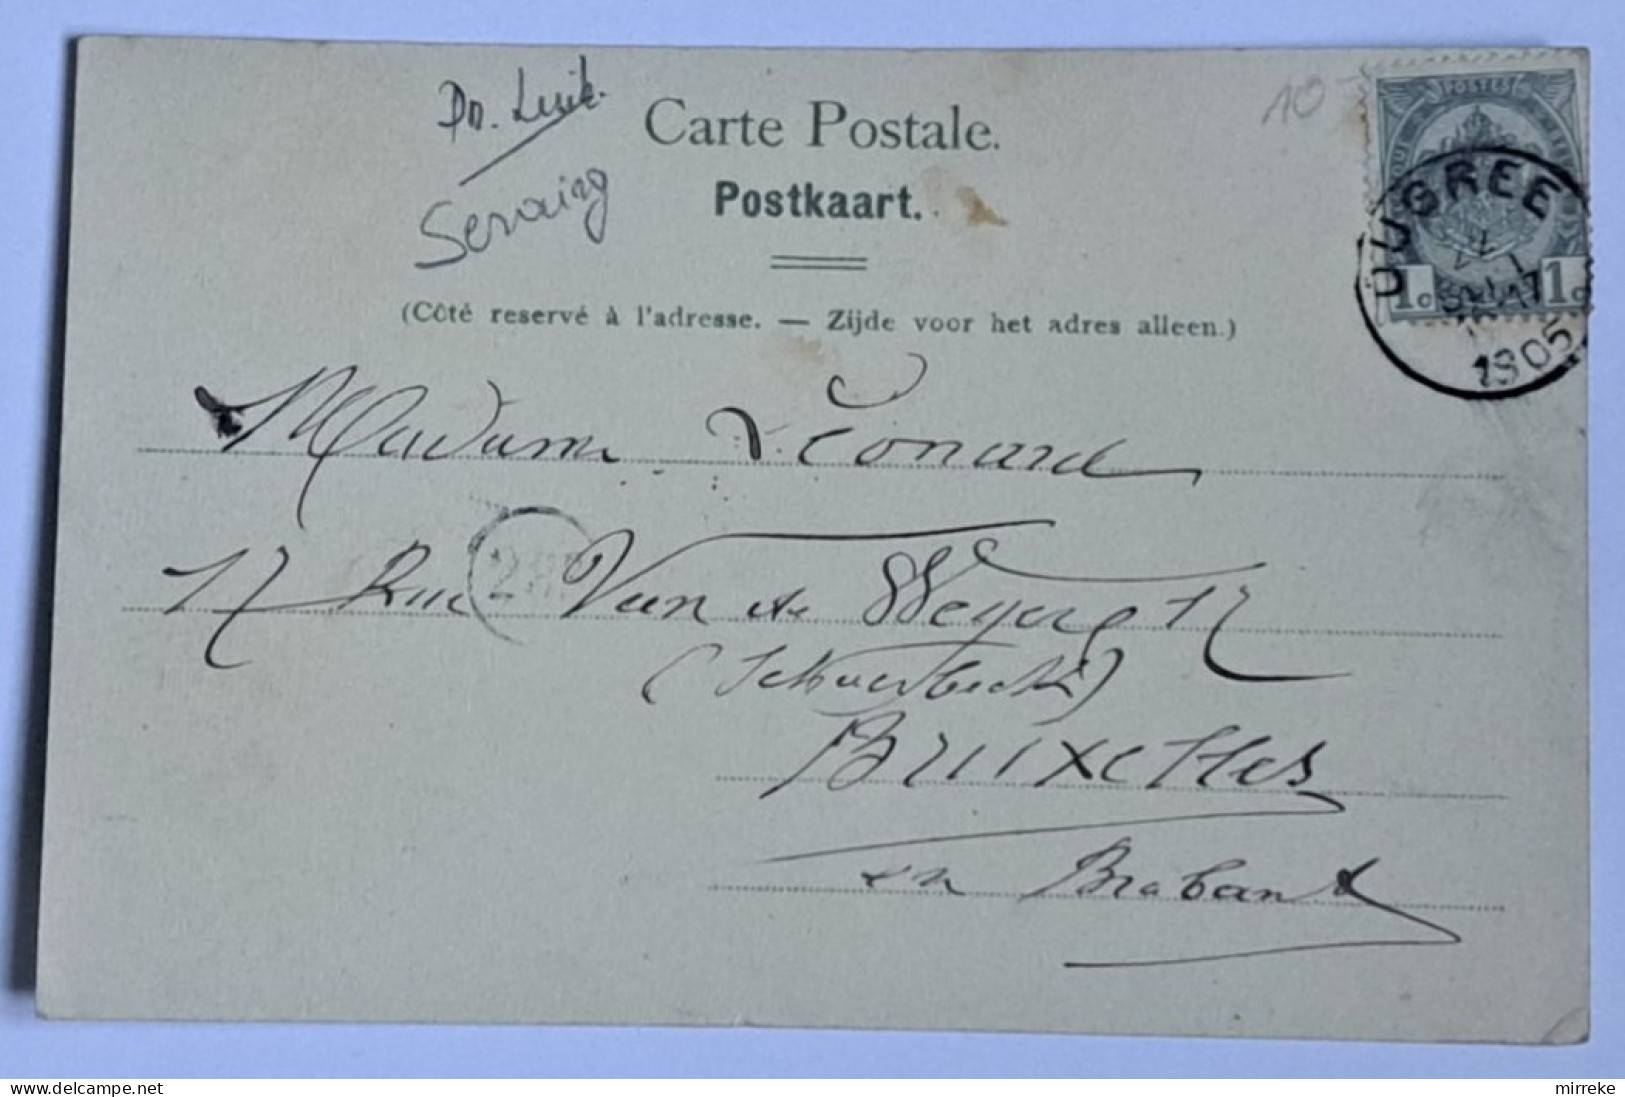 Pn. Luik.
Seraing
10-
Carte Postale.
Postkaart.
(Côté reservé à l'adresse. — Zijde voor het adres alleen.)
POSTES
1c 1c
OUGREE
17
1905
Madame Léonard
17 Rue Van de Weyer 17
(Schaerbeck)
Bruxelles
en Brabant
delcampe.net
mirreke